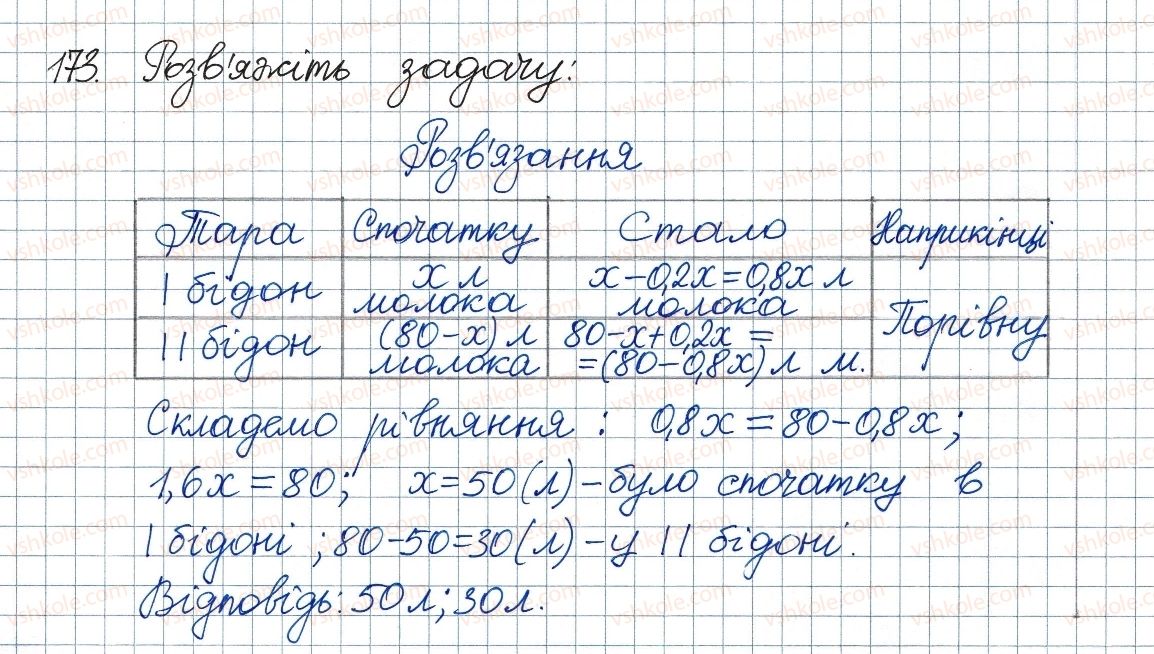 173. Розв'яжіть задачу:
Розв'язання
Тара Спочатку Стало Наприкінці
I бідон x л молока x-0,2x=0,8x л молока Порівну
II бідон (80-x) л молока 80-x+0,2x = =(80-0,8x) л м.
Складемо рівняння : 0,8x=80-0,8x;
1,6x=80; x=50(л)-було спочатку в
I бідоні ; 80-50=30(л)-у II бідоні.
Відповідь: 50л; 30л.